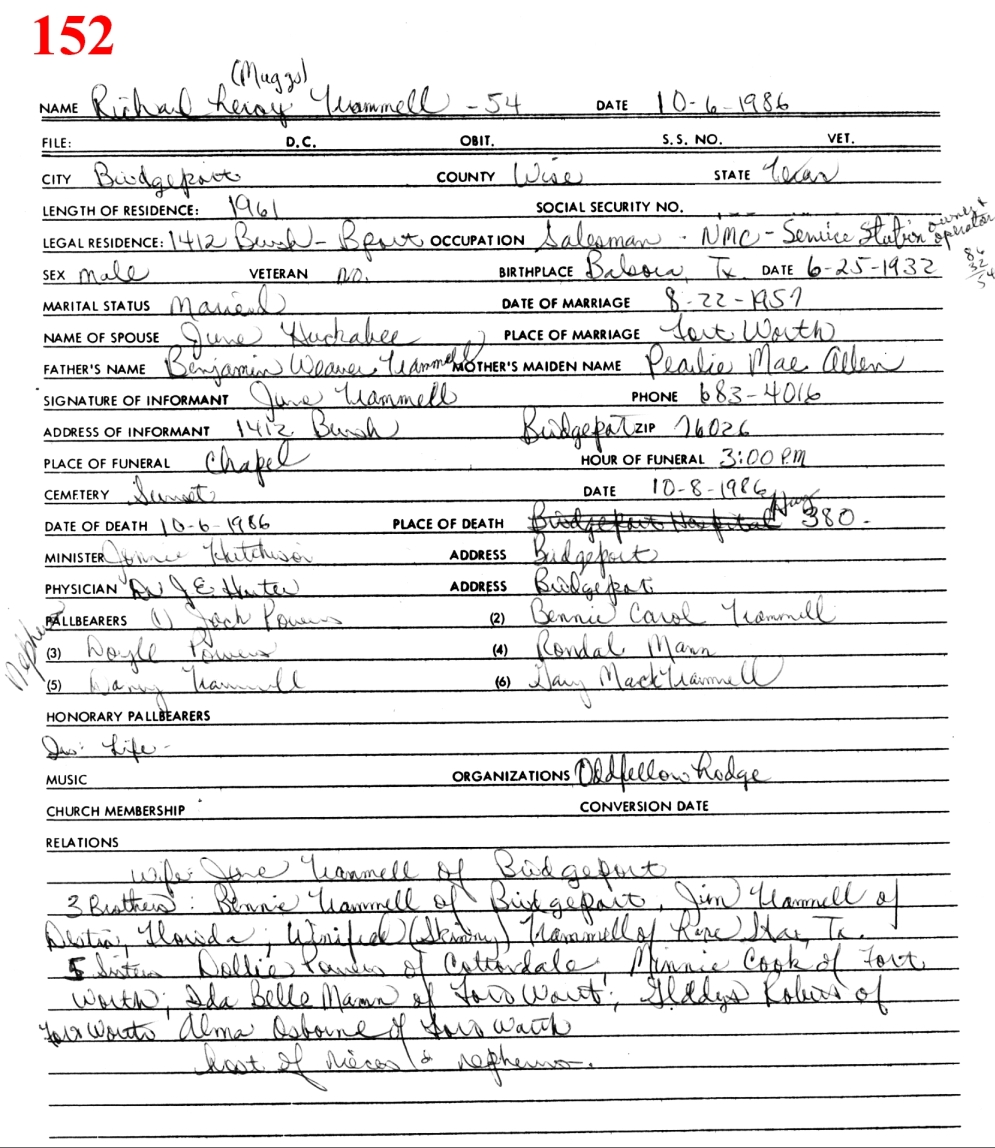 152
(Muggs)
NAME Richard Leroy Trammell - 54 DATE 10-6-1986
FILE: D.C. OBIT. S.S. NO. VET.
CITY Bridgeport COUNTY Wise STATE Texas
LENGTH OF RESIDENCE: 1961 SOCIAL SECURITY NO.
LEGAL RESIDENCE: 1412 Bush - Bport OCCUPATION Salesman - NMC - Service Station owner & operator
SEX Male VETERAN no. BIRTHPLACE Balsora, Tx. DATE 6-25-1932
86
32
54
MARITAL STATUS Married DATE OF MARRIAGE 8-22-1957
NAME OF SPOUSE June Huckabee PLACE OF MARRIAGE Fort Worth
FATHER'S NAME Benjamin Weaver Trammell MOTHER'S MAIDEN NAME Pearlie Mae Allen
SIGNATURE OF INFORMANT June Trammell PHONE 683-4016
ADDRESS OF INFORMANT 1412 Bush Bridgeport ZIP 76026
PLACE OF FUNERAL Chapel HOUR OF FUNERAL 3:00 PM
CEMETERY Sunset DATE 10-8-1986
DATE OF DEATH 10-6-1986 PLACE OF DEATH Bridgeport Hospital Hwy 380.
MINISTER Hutchison ADDRESS Bridgeport
PHYSICIAN Dr J.E. Hunter ADDRESS Bridgeport
Nephews
PALLBEARERS (1) Jack Powers (2) Bennie Carol Trammell
(3) Doyle Powers (4) Rondal Mann
(5) Trammell (6) Gary Mack Trammell
HONORARY PALLBEARERS
Ins: Life -
MUSIC ORGANIZATIONS Oddfellow Lodge
CHURCH MEMBERSHIP CONVERSION DATE
RELATIONS
wife June Trammell of Bridgeport
3 Brothers: Bennie Trammell of Bridgeport, Jim Trammell of
Destin, Florida; Winifred (Skinny) Trammell of Star, Tx.
5 Sisters Dollie Powers of Cottondale; Minnie Cook of Fort
Worth; Ida Belle Mann of Fort Worth; Glddys Roberts of
Fort Worth Alma Osborne of Fort Worth
host of nieces & nephews.